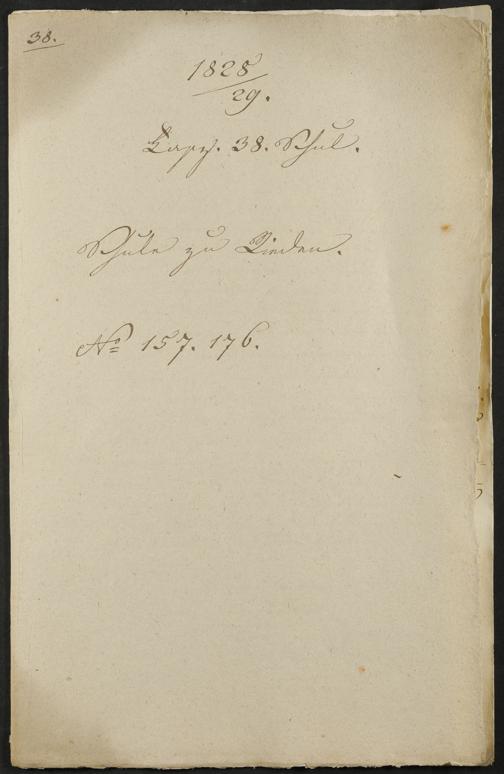 38.
1828
29.
Kapp. 38. Schul.
Schule zu Rieden.
No 157. 176.